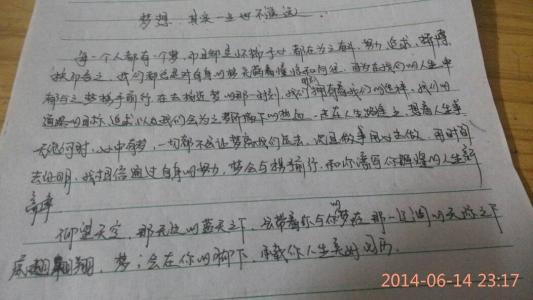 梦想，其实一点也不遥远。
每一个人都有一个梦，而且都是怀揣于心都在为之奋斗，努力追求，拼搏
我们都是对自身的梦充满着憧憬和向往，因为在我们的人生中
有与之梦携手前行，在去接近梦的那一时刻，我们拥有着我们的选择，我们的
道路的目标，追求以及我们会为之努力
心中有梦，一切都不会让梦离我们远去，因且做事用心去做，用时间
去证明，我相信通过自身的努力，梦会与携手前行，和你谱写你辉煌的人生新
篇章
仰望天空，那无边的蓝天之下，会带着你与你的梦在那一辽阔的天际之下
展翅翱翔，梦，会在你的脚下，承载你人生美好
2014-06-14 23:17